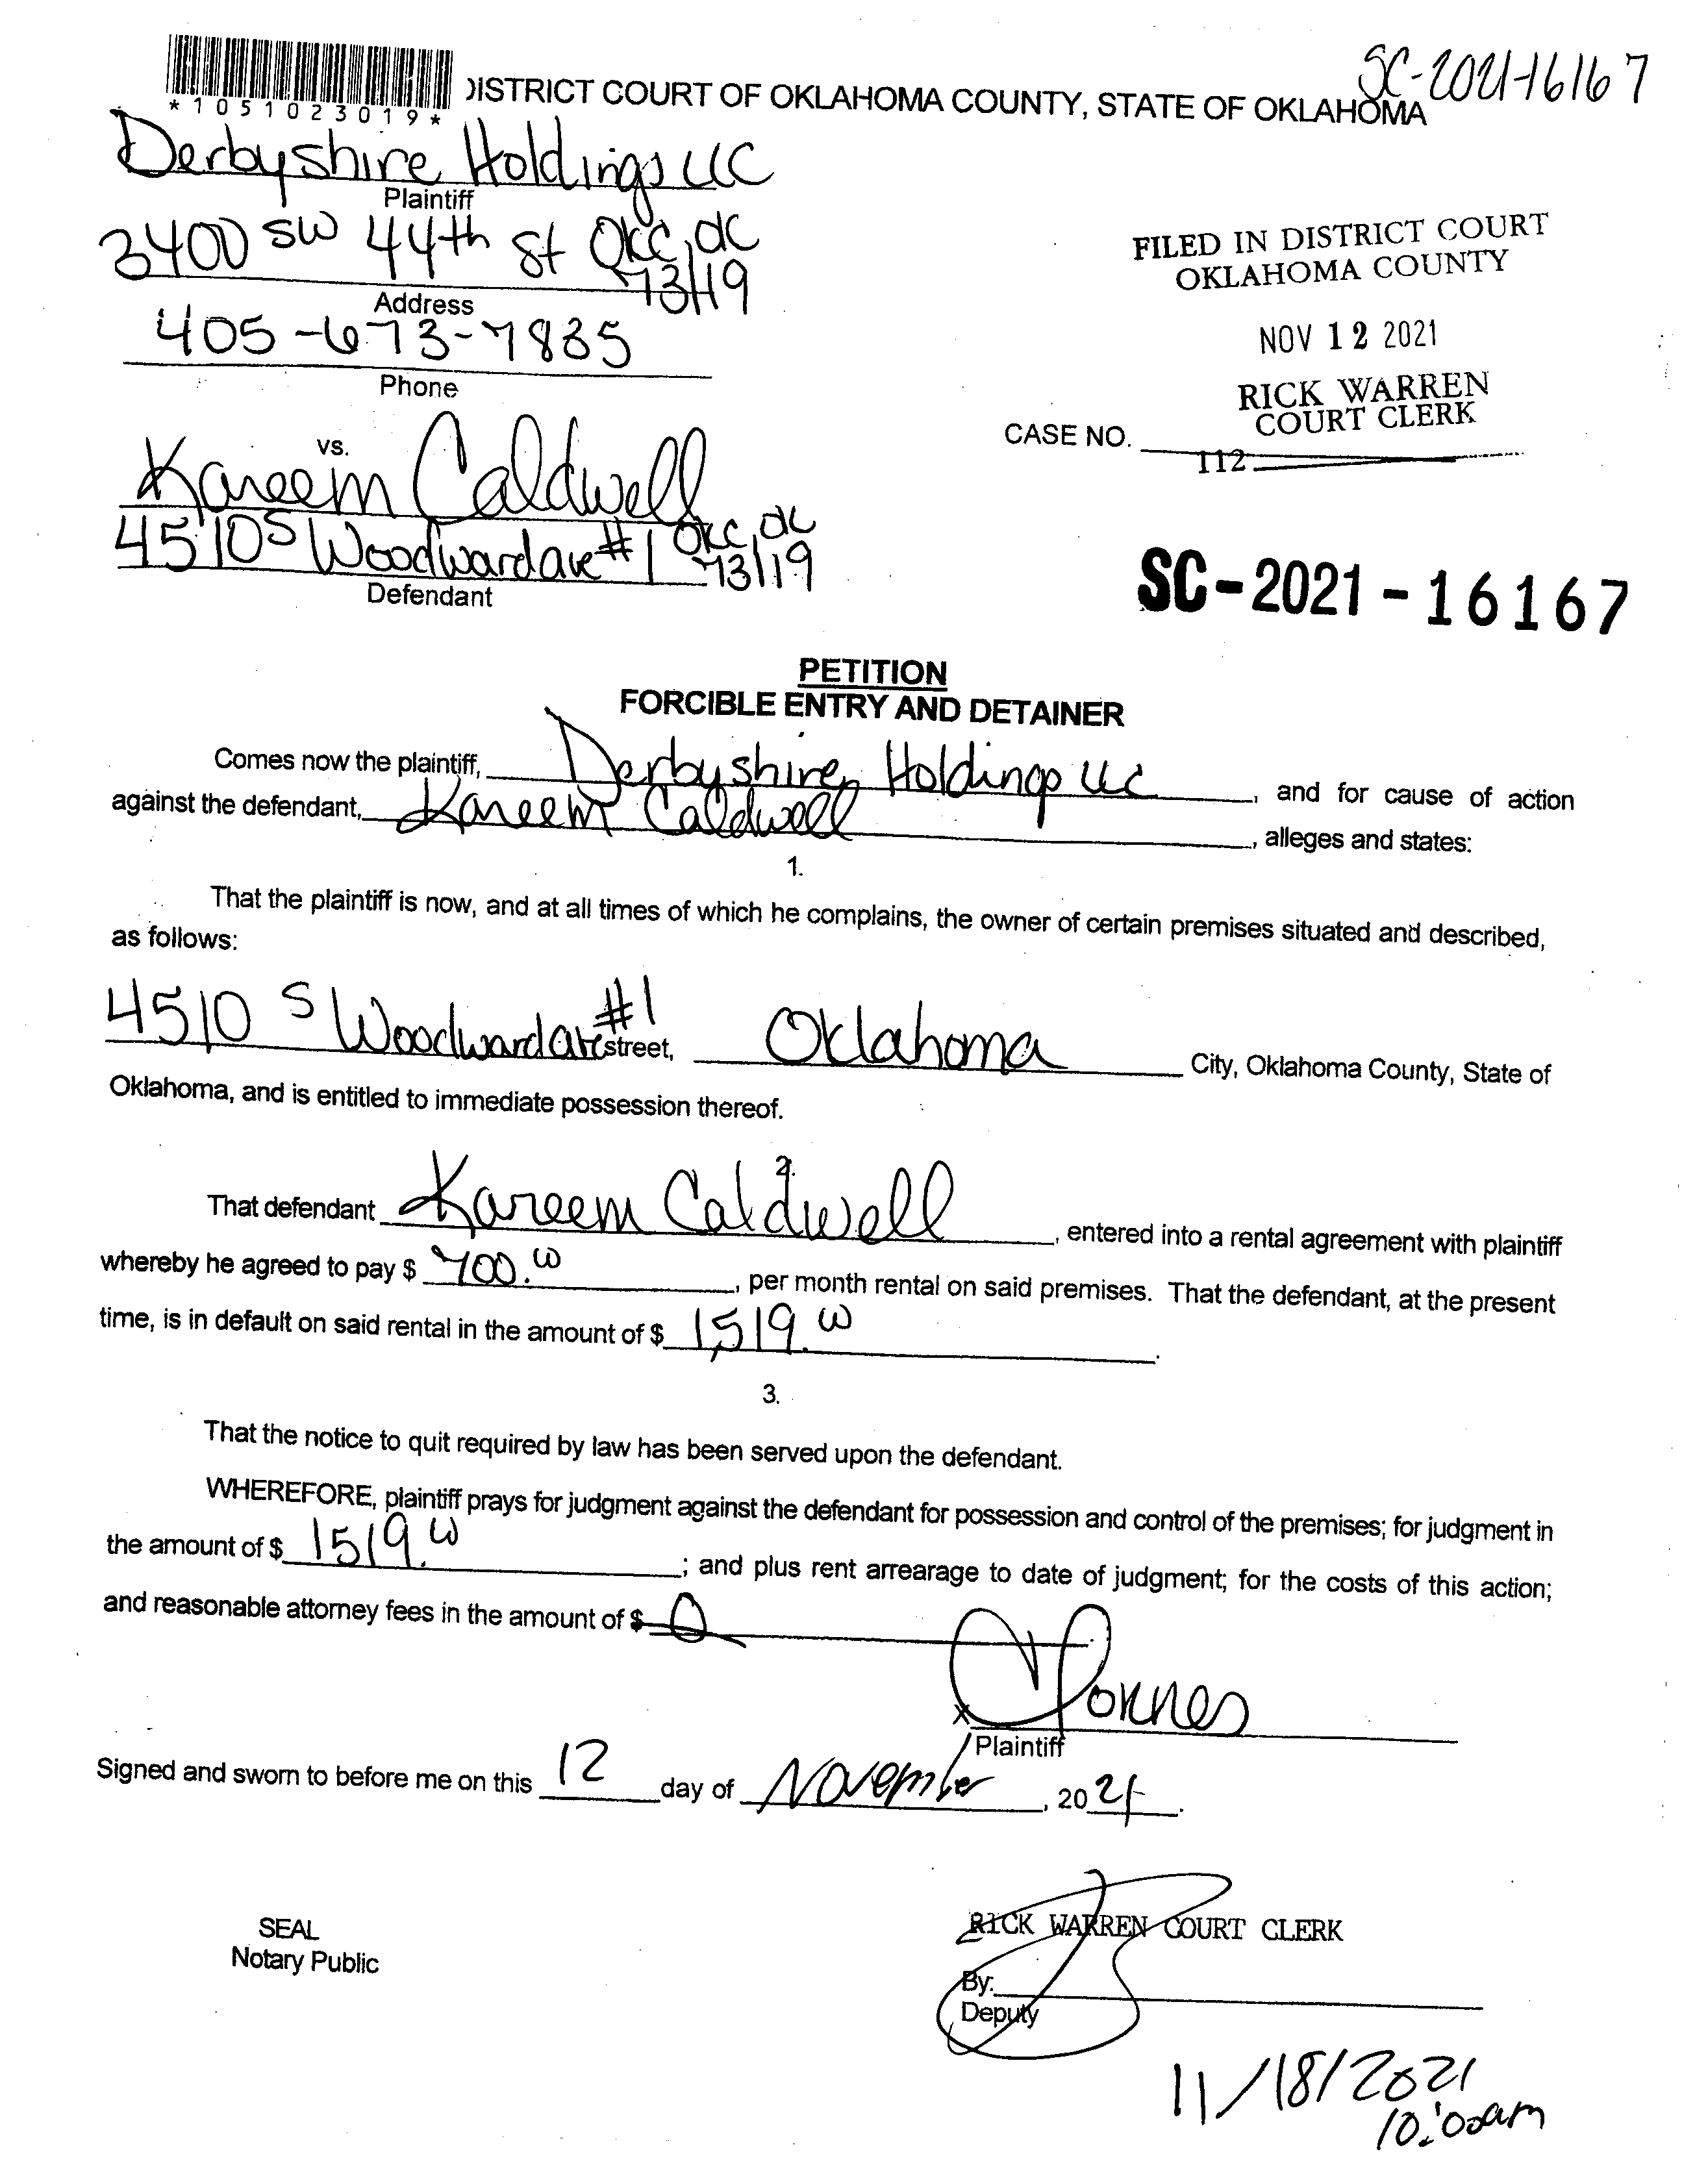 SC-2021-16167
*1051023019*
DISTRICT COURT OF OKLAHOMA COUNTY, STATE OF OKLAHOMA
Derbyshire Holdings LLC
Plaintiff
3400 SW 44th St OKC, OK
73119
Address
405-673-7835
Phone
FILED IN DISTRICT COURT
OKLAHOMA COUNTY
NOV 12 2021
RICK WARREN
COURT CLERK
CASE NO.
112
vs.
Kareem Caldwell
4510 S Woodward ave #1 OKC, OK
73119
Defendant
SC-2021-16167
PETITION
FORCIBLE ENTRY AND DETAINER
Comes now the plaintiff, Derbyshire Holdings LLC, and for cause of action
against the defendant, Kareem Caldwell, alleges and states:
1.
That the plaintiff is now, and at all times of which he complains, the owner of certain premises situated and described,
as follows:
4510 S Woodward ave #1 street, Oklahoma City, Oklahoma County, State of
Oklahoma, and is entitled to immediate possession thereof.
2.
That defendant Kareem Caldwell, entered into a rental agreement with plaintiff
whereby he agreed to pay $ 700.00, per month rental on said premises. That the defendant, at the present
time, is in default on said rental in the amount of $ 1,519.00.
3.
That the notice to quit required by law has been served upon the defendant.
WHEREFORE, plaintiff prays for judgment against the defendant for possession and control of the premises; for judgment in
the amount of $ 1519.00; and plus rent arrearage to date of judgment; for the costs of this action;
and reasonable attorney fees in the amount of $ 0.
x
Plaintiff
Signed and sworn to before me on this 12 day of November, 2021.
SEAL
Notary Public
RICK WARREN COURT CLERK
By:
Deputy
11/18/2021
10:00am